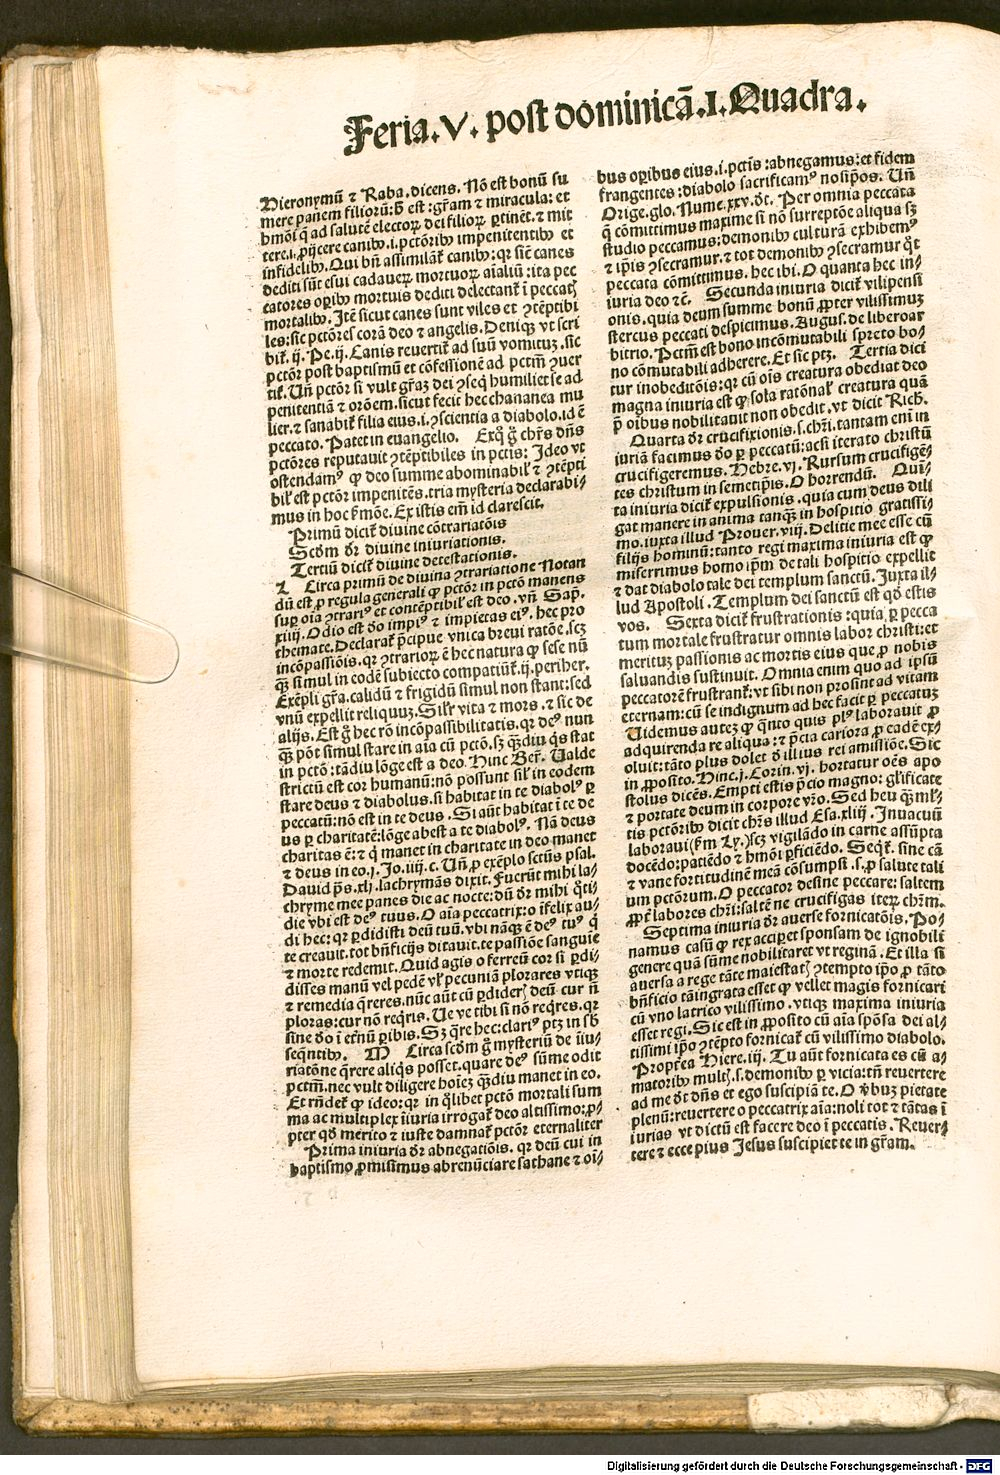 Feria.V.post dominicā.I.Quadra.
Hieronymū ⁊ Raba.dicens.Nō est bonū su
mere panem filiorū:.i. gr̄am ⁊ miracula: et
infidelib9. Qui bn̄ assimilant̄ canib9: qr sic̄t canes
dediti sūt esui cadaueꝝ mortuoꝝ aīaliū: ita pec
catores oꝑib9 mortuis dediti delectant̄ ī peccat̄
mortalib9. Itē sicut canes sunt viles et ꝯtēptibi
les: sic pctōres corā deo ⁊ angelis. Deniqꝫ vt scri
bit̄.ij.Pe.ij. Canis reuertit̄ ad suū vomitū, sic
pctōr post baptismū et cōfessionē ad pctm̄ ꝯuer
tit̄. Un̄ pctōr si vult gr̄aꝫ dei ꝯseq̄ humiliet se ad
penitentiā ⁊ orōem, sicut fecit hec chananea mu
lier, ⁊ sanabit̄ filia eius.i. ꝯscientia a diabolo.id ē
peccato. Patet in euangelio. Exq̊ g̊ chr̄s dn̄s
pctōres reputauit ꝯtēptibiles in pctis: Ideo vt
ostendam9 ꝙ deo summe abominabil̄ ⁊ ꝯtēpti
bil̄ est pctōr impenitēs, tria mysteria declarabi-
mus in hoc s̄mōe. Ex istis em̄ id clarescit.
Primū dicit̄ diuine cōtrariatōis
Scd̄m dr̄ diuine iniuriationis.
Tertiū dicit̄ diuine detestationis.
Circa primū de diuina ꝯtrariatione Notan
dū est ꝓ regula generali ꝙ pctōr in pctō manens
suꝑ oīa ꝯtrari9 et contēptibil̄ est deo. vn̄ Sap.
xiiij. Odio est deo impi9 ⁊ impietas ei9. hec pro
themate. Declarat̄ p̄cipue vnica breui ratōe.scꝫ
incōpassiōis. qr ꝯtrarioꝝ ē hec natura ꝙ sese nū
qꝫ simul in eodē subiecto compatiunt̄.ij.periher.
Exēpli gr̄a. calidū ⁊ frigidū simul non stant: sed
vnū expellit reliquū. Silr̄ vita ⁊ mors. ⁊ sic de
alijs. Est g̊ hec rō incōpassibilitatis. qr de9 nun
qꝫ pōt simul stare in aīa cū pctō. sꝫ qꝫdiu q̊s stat
in pctō: tādiu lōge est a deo. Hinc Ber̄. Ualde
strictū est cor humanū: nō possunt sil̄ in eodem
stare deus ⁊ diabolus. si habitat in te diabol9 ꝑ
peccatū: nō est in te deus. Si aūt habitat ī te de
us ꝑ charitatē: lōge abest a te diabol9. Nā deus
charitas ē: ⁊ q̇ manet in charitate in deo manet
⁊ deus in eo.j.Jo.iiij.c. Un̄ ꝓ exēplo sctūs psal.
Dauid ps̄.xlj. lachrymās dixit. Fuerūt mihi la-
chryme mee panes die ac nocte: dū dr̄ mihi q̊ti-
die vbi est de9 tuus. O aīa peccatrix: o īfelix au-
di hec: qr ꝑdidisti deū tuū. vbi nāqꝫ ē de9 tu9 q̇
te creauit. tot bn̄ficijs ditauit. te passiōe sanguīe
⁊ morte redemit. Quid agis o ferreū cor si ꝑdi-
disses manū vel pedē vl̄ pecuniā plorares vtiqꝫ
⁊ remedia q̄reres. nūc aūt cū ꝑdider̄ deū cur n̄
ploras: cur nō req̄ris. Ue ve tibi si nō req̄res. qr
sine deo ī etn̄ū ꝑibis. Sꝫ q̄re hec: clari9 ptꝫ in sb̄
seq̄ntib9. M Circa scd̄m g̊ mysteriū de iniu-
riatōne q̄rere aliq̊s posset. quare de9 sūme odit
pctm̄. nec vult diligere hoīeꝫ qꝫdiu manet in eo.
Et rn̄det̄ ꝙ ideo: qr in q̊libet pctō mortali sum
ma ac multiplex īiuria irrogat̄ deo altissimo: ꝓ-
pter qd̄ merito ⁊ iuste damnat̄ pctōr eternaliter
Prima iniuria dr̄ abnegatiōis. qr deū cui in
baptismo ꝓmisimus abrenūciare sathane ⁊ oī-
bus oꝑibus eius.i.pctīs: abnegamus: et fidem
frangentes: diabolo sacrificam9 nosip̄os. Un̄
Orige.glo.Nume.xxv.dt̄. Per omnia peccata
q̄ cōmittimus maxime si nō surreptōe aliqua sꝫ
studio peccamus: demonib9 culturā exhibem9
⁊ ip̄is ꝯsecramur. ⁊ tot demonib9 ꝯsecramur q̊t
peccata cōmittimus. hec ibi. O quanta hec in-
iuria deo ⁊c̄. Secunda iniuria dicit̄ vilipensi
onis. quia deum summe bonū ꝓpter vilissimuꝫ
stercus peccati despicimus. Augus. de liberoar
bitrio. Pctm̄ est bono incōmutabili spreto bo-
no cōmutabili adherere. Et sic ptꝫ. Tertia dici
tur inobeditōis: qr cū oīs creatura obediat deo
magna iniuria est ꝙ sola ratōnal̄ creatura quā
p̄ oībus nobilitauit non obedit. vt dicit Rich̄.
Quarta dr̄ crucifixionis.s.chr̄i. tantam eni in
iuriā facimus deo ꝑ peccatū: acsi iterato christū
crucifigeremus. Hebre.vj. Rursum crucifigē-
tes christum in semetip̄is. O horrendū. Quī-
ta iniuria dicit̄ expulsionis. quia cum deus dili
gat manere in anima tanqꝫ in hospitio gratissi-
mo. iuxta illud Prouer.viij. Delitie mee esse cū
filijs hominū: tanto regi maxima iniuria est ꝙ
miserrimus homo ip̄m de tali hospitio expellit
⁊ dat diabolo tale dei templum sanctū. Juxta il-
lud Apostoli. Templum dei sanctū est qd̄ estis
vos. Sexta dicit̄ frustrationis: quia ꝑ pecca
tum mortale frustratur omnis labor christi: et
merituꝫ passionis ac mortis eius que ꝓ nobis
saluandis sustinuit. Omnia enim quo ad ipsū
peccatorē frustrant̄: vt sibi non prosint ad vitam
eternam: cū se indignum ad hec facit ꝑ peccatuꝫ
Uidemus auteꝫ ꝙ q̊nto quis pl9 laborauit ꝓ
adquirenda re aliqua: ⁊ p̄cia cariora ꝓ eadē ex-
oluit: tāto plus dolet de illius rei amissiōe. Sic
in ꝓposito. Hinc.j.Corin.vj. hortatur oēs apo
stolus dicēs. Empti estis p̄cio magno: gl̄ificate
⁊ portate deum in corpore vr̄o. Sed heu qꝫ ml̄-
tis pctōrib9 dicit chr̄s illud Esa.xliij. In vacuū
laboraui (s̄m Lx.) scꝫ vigilādo in carne assūpta
docēdo: patiēdo ⁊ hmōi ꝑficiēdo. Seqt̄. sine cā
⁊ vane fortitudinē meā cōsumpsi.s.ꝓ salute tali
um pctōrum. O peccator desine peccare: saltem
ꝓpt̄ labores chr̄i: saltē ne crucifigas iteꝝ chr̄m.
Septima iniuria dr̄ auerse fornicatōis. Po-
namus casū ꝙ rex acciperet sponsam de ignobili
genere quā sūme nobilitaret vt reginā. Et illa si
auersa a rege tāte maiestat̄ ꝯtempto ip̄o ꝓ tāto
bn̄ficio tā ingrata esset ꝙ vellet magis fornicari
cū vno latrico vilissimo. vtiqꝫ maxima iniuria
esset regi. Sic est in ꝓposito cū aīa spōsa dei al-
tissimi ip̄o ꝯtēpto fornicat̄ cū vilissimo diabolo.
Propt̄ea Hiere.iij. Tu aūt fornicata es cū a-
matorib9 mult̄.s.demonib9 ꝑ vicia: tn̄ reuertere
ad me dt̄ dn̄s et ego suscipiā te. O v̄buꝫ pietate
plenū: reuertere o peccatrix aīa: noli tot ⁊ tātas ī
iurias vt dictū est facere deo ī peccatis. Reuer-
tere ⁊ ecce pius Jesus suscipiet te in gr̄am.
Digitalisierung gefördert durch die Deutsche Forschungsgemeinschaft - DFG